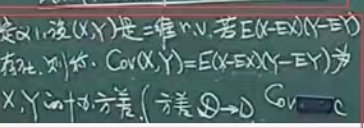 定义1.设(X,Y)是二维r.v.若E(X-EX)(Y-EY)
存在.则称.Cov(X,Y)=E(X-EX)(Y-EY)为
X,Y的协方差.(方差 D→D Cov